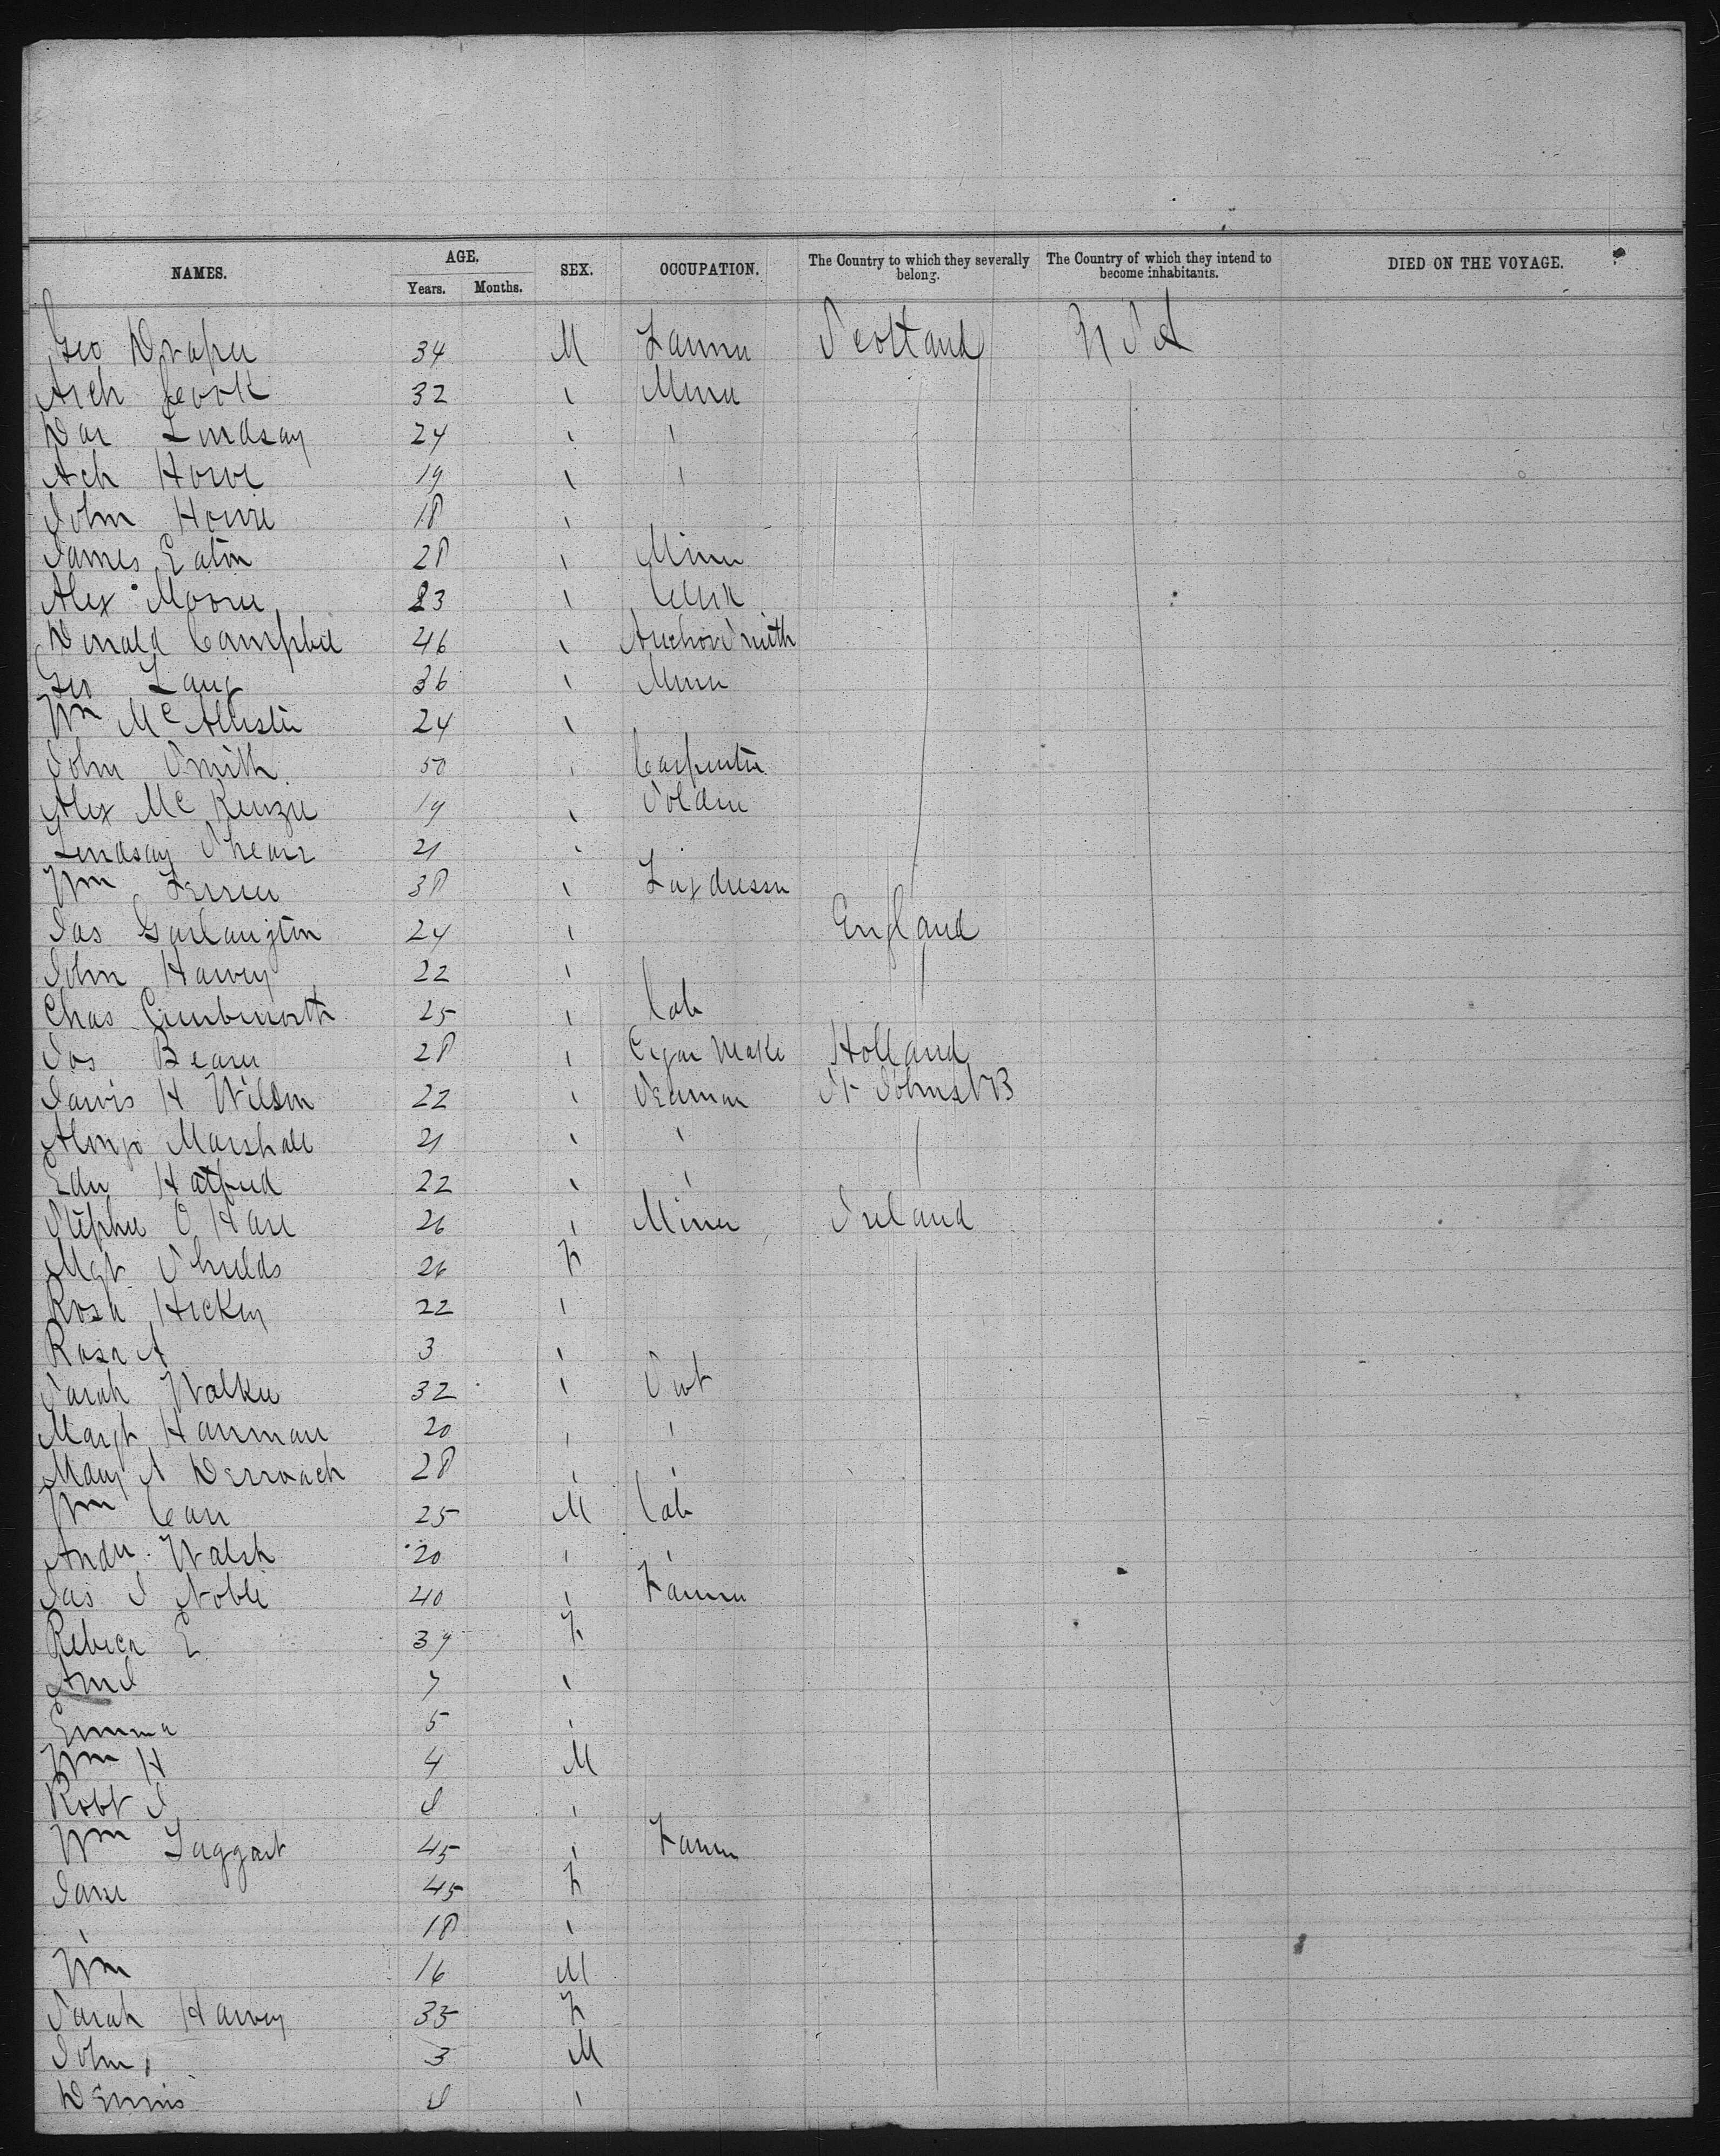 NAMES. AGE. SEX. OCCUPATION. The Country to which they severally belong. The Country of which they intend to become inhabitants. DIED ON THE VOYAGE.
Years. Months.
Geo Draper 34 M Farmer Scotland U S A
Arch Cook 32 " Miner
Dan Lindsay 24 " "
Ach Howe 19 " "
John Howie 18 "
James Eaton 28 " Miner
Alex Moore 23 " Clerk
Donald Campbell 46 " Anchor Smith
Geo Lang 36 " Miner
Wm McAllister 24 "
John Smith 50 " Carpenter
Alex McKenzie 19 " Soldier
Lindsay Shearer 21 "
Wm Ferrier 38 " Flaxdresser
Jas Garlangton 24 " England
John Harvey 22 "
Chas 25 " Lab
Jos 28 " Cigar Make Holland
Jarvis H Wilson 22 " Seaman St Johns NB
Alonzo Marshall 21 " "
Edw Hatfield 22 " "
Stephen O Hare 26 " Miner Ireland
Mgt Shields 26 F
Rosa Hickey 22 "
Rosa A 3 "
Sarah Walker 32 " Svt
Margt Hanman 20 " "
Mary A Derroach 28 " "
Wm Carr 25 M Lab
Andw Walsh 20 " "
Jas J Noble 40 " Farmer
Rebeca E 39 F
7 "
Emma 5 "
Wm H 4 M
Robt J "
Wm Taggart 45 " Farmer
Jane 45 F
" 18 "
Wm 16 M
Sarah Harvey 35 F
John 3 M
Dennis "